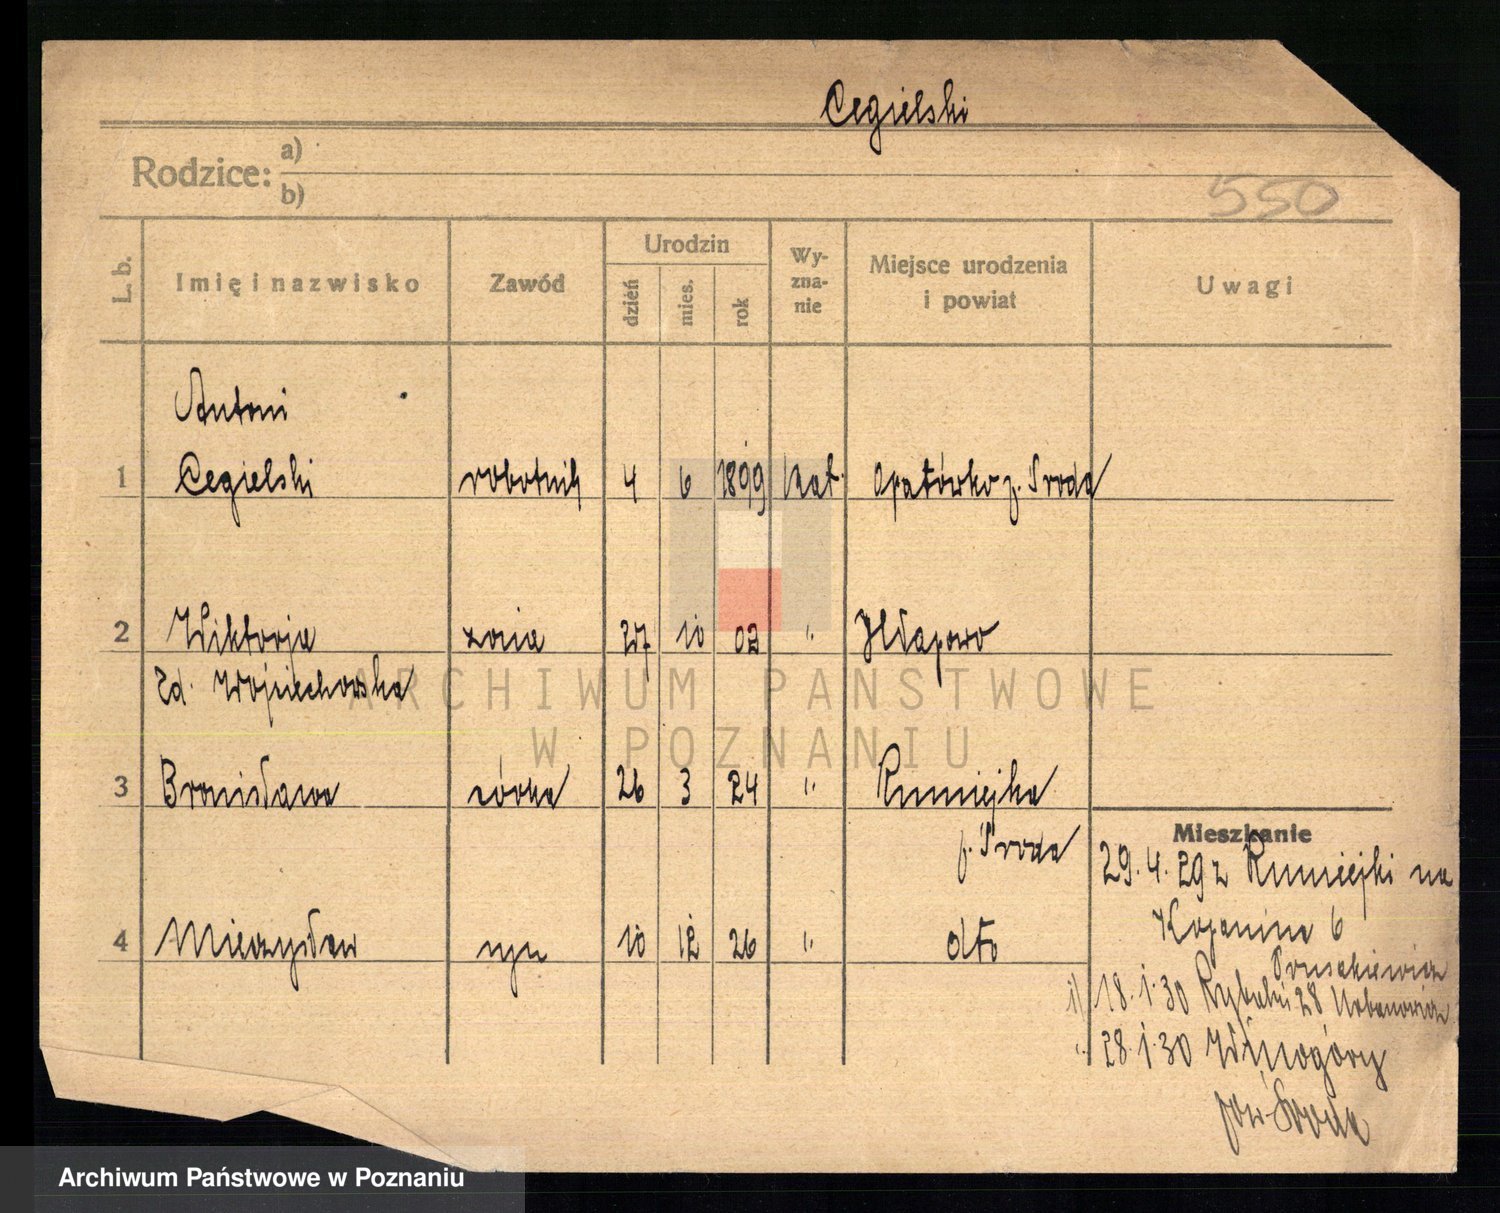 Cegielski
Rodzice: a)
b)
550
L. b.
Imię i nazwisko
Zawód
Urodzin
dzień
mies.
rok
Wy-
zna-
nie
Miejsce urodzenia
i powiat
Uwagi
Antoni
1 Cegielski robotnik 4 6 1899 kat. Opatówko p. Środa
2 Wiktorja żona 27 10 02 " Chłapowo
zd. Wojciechowska
3 Bronisława córka 26 3 24 " Rumiejka
p. Środa
4 Mieczysław syn 10 12 26 " dto
Mieszkanie
29.4.29 z Rumiejki na
6
18.1.30 28 Urbanowicz
28.1.30 Winogóry
pow. Środa
ARCHIWUM PAŃSTWOWE
W POZNANIU
Archiwum Państwowe w Poznaniu